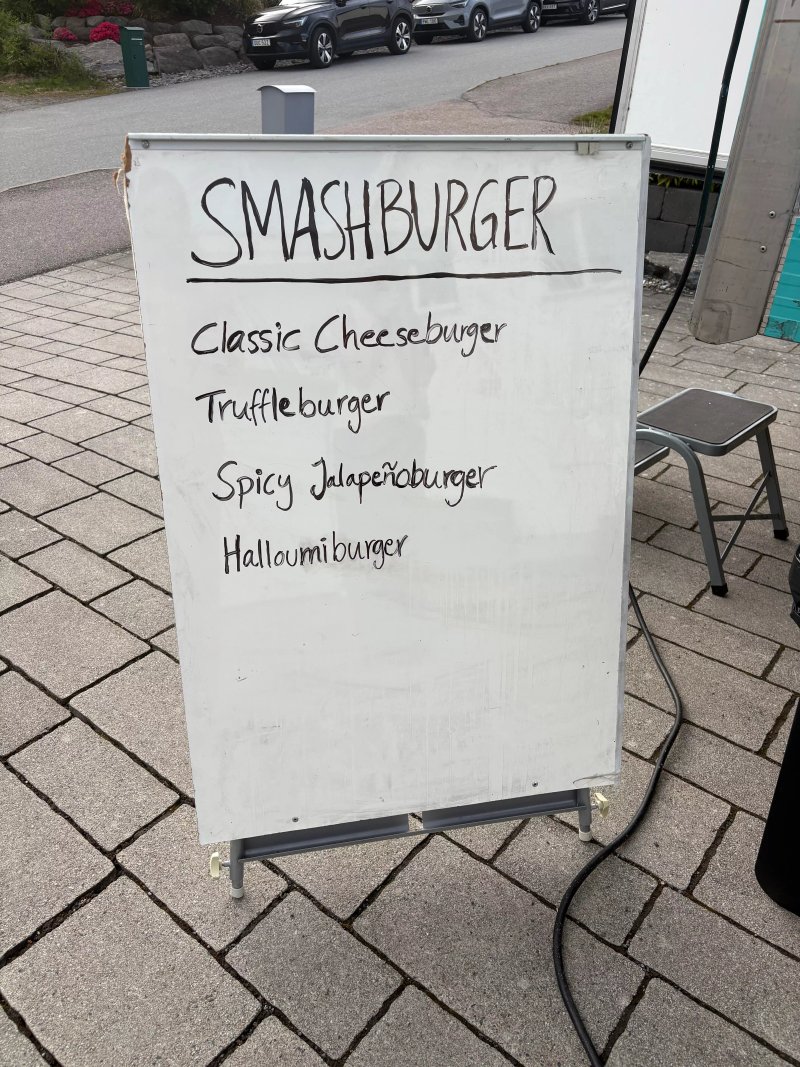 SMASHBURGER
Classic Cheeseburger
Truffleburger
Spicy Jalapeñoburger
Halloumiburger